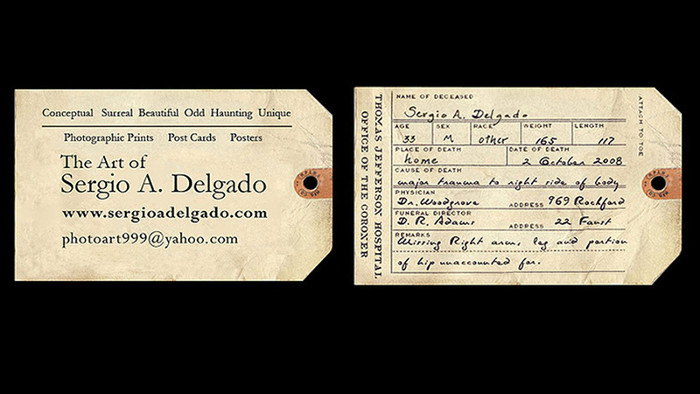 Conceptual Surreal Beautiful Odd Haunting Unique
Photographic Prints Post Cards Posters
The Art of
Sergio A. Delgado
www.sergioadelgado.com
photoart999@yahoo.com
THOMAS JEFFERSON HOSPITAL
OFFICE OF THE CORONER
NAME OF DECEASED
Sergio A. Delgado
AGE SEX RACE WEIGHT LENGTH
33 M other 165 117
PLACE OF DEATH DATE OF DEATH
home 2 October 2008
CAUSE OF DEATH
major trauma to right side of body
PHYSICIAN
Dr. Woodgrove ADDRESS 969 Rochford
FUNERAL DIRECTOR
D. R. Adams ADDRESS 22 Faust
REMARKS
Missing Right arm, leg and portion
of hip unaccounted for.
ATTACH TO TOE